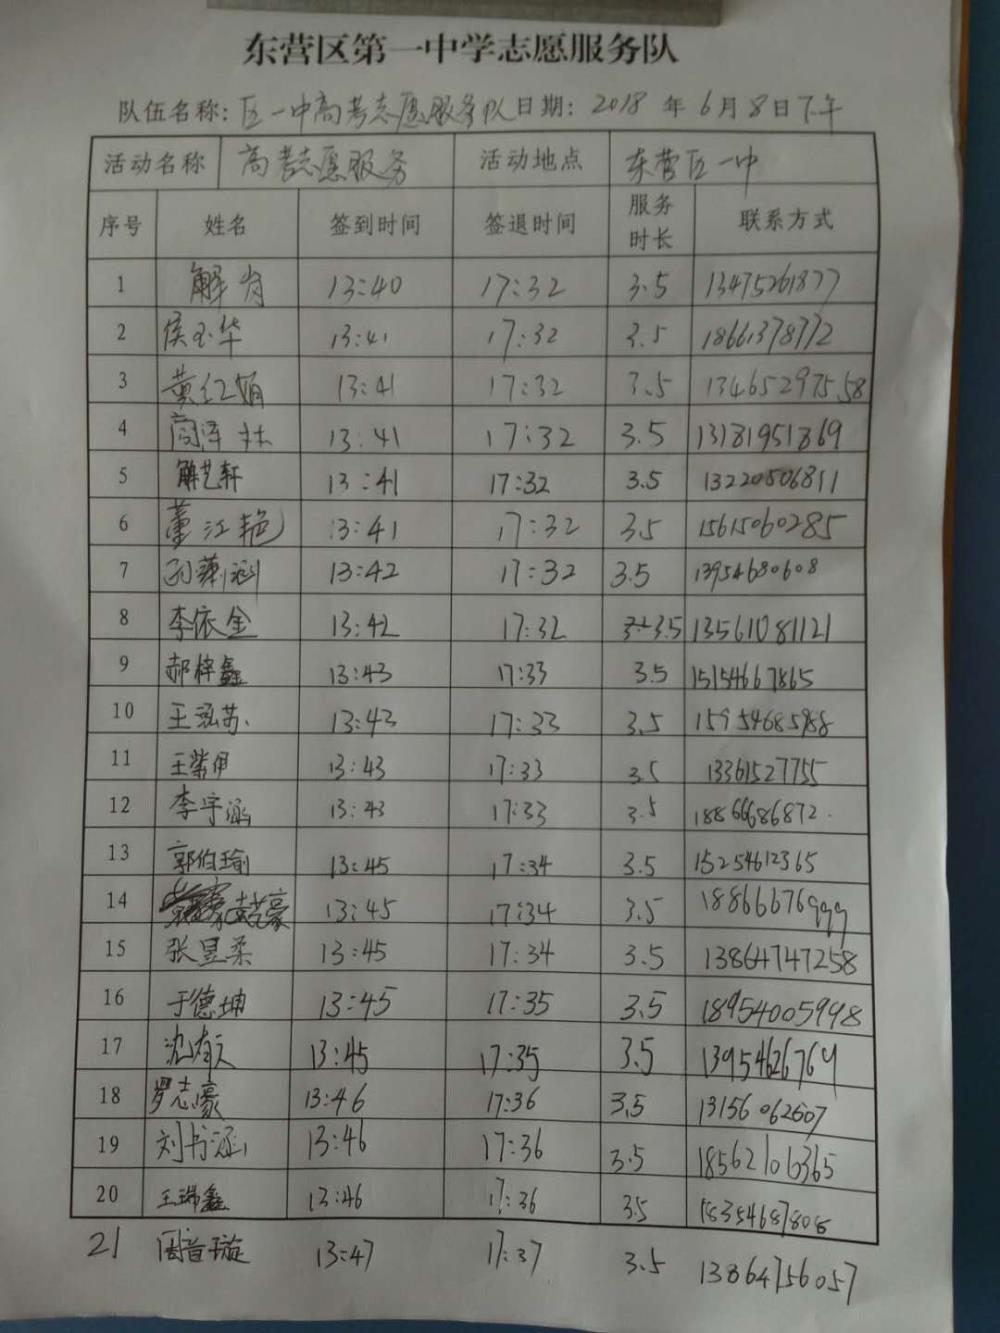 东营区第一中学志愿服务队
队伍名称：区一中高考志愿服务队 日期：2018 年 6 月 8 日下午
活动名称 高考志愿服务 活动地点 东营区一中
序号 姓名 签到时间 签退时间 服务时长 联系方式
1 解肖 13:40 17:32 3.5 13475261877
2 侯玉华 13:41 17:32 3.5 18661378772
3 黄红娟 13:41 17:32 3.5 13465297558
4 13:41 17:32 3.5 13181951869
5 解艺轩 13:41 17:32 3.5 13220506811
6 董江艳 13:41 17:32 3.5 15615060285
7 13:42 17:32 3.5 13954680608
8 李依金 13:42 17:32 3.5 13561081121
9 郝梓鑫 13:43 17:33 3.5 15154667865
10 王泓苏 13:43 17:33 3.5 15954685988
11 13:43 17:33 3.5 13361527755
12 李宇涵 13:43 17:33 3.5 18866686872
13 郭伯瑜 13:45 17:34 3.5 15254612365
14 13:45 17:34 3.5 18866676999
15 张昱柔 13:45 17:34 3.5 13864747258
16 于德坤 13:45 17:35 3.5 18954005998
17 13:45 17:35 3.5 13954626769
18 罗志豪 13:46 17:36 3.5 13156062607
19 刘书涵 13:46 17:36 3.5 18562106365
20 王瑞鑫 13:46 17:36 3.5 18354687808
21 周音璇 13:47 17:37 3.5 13864756057